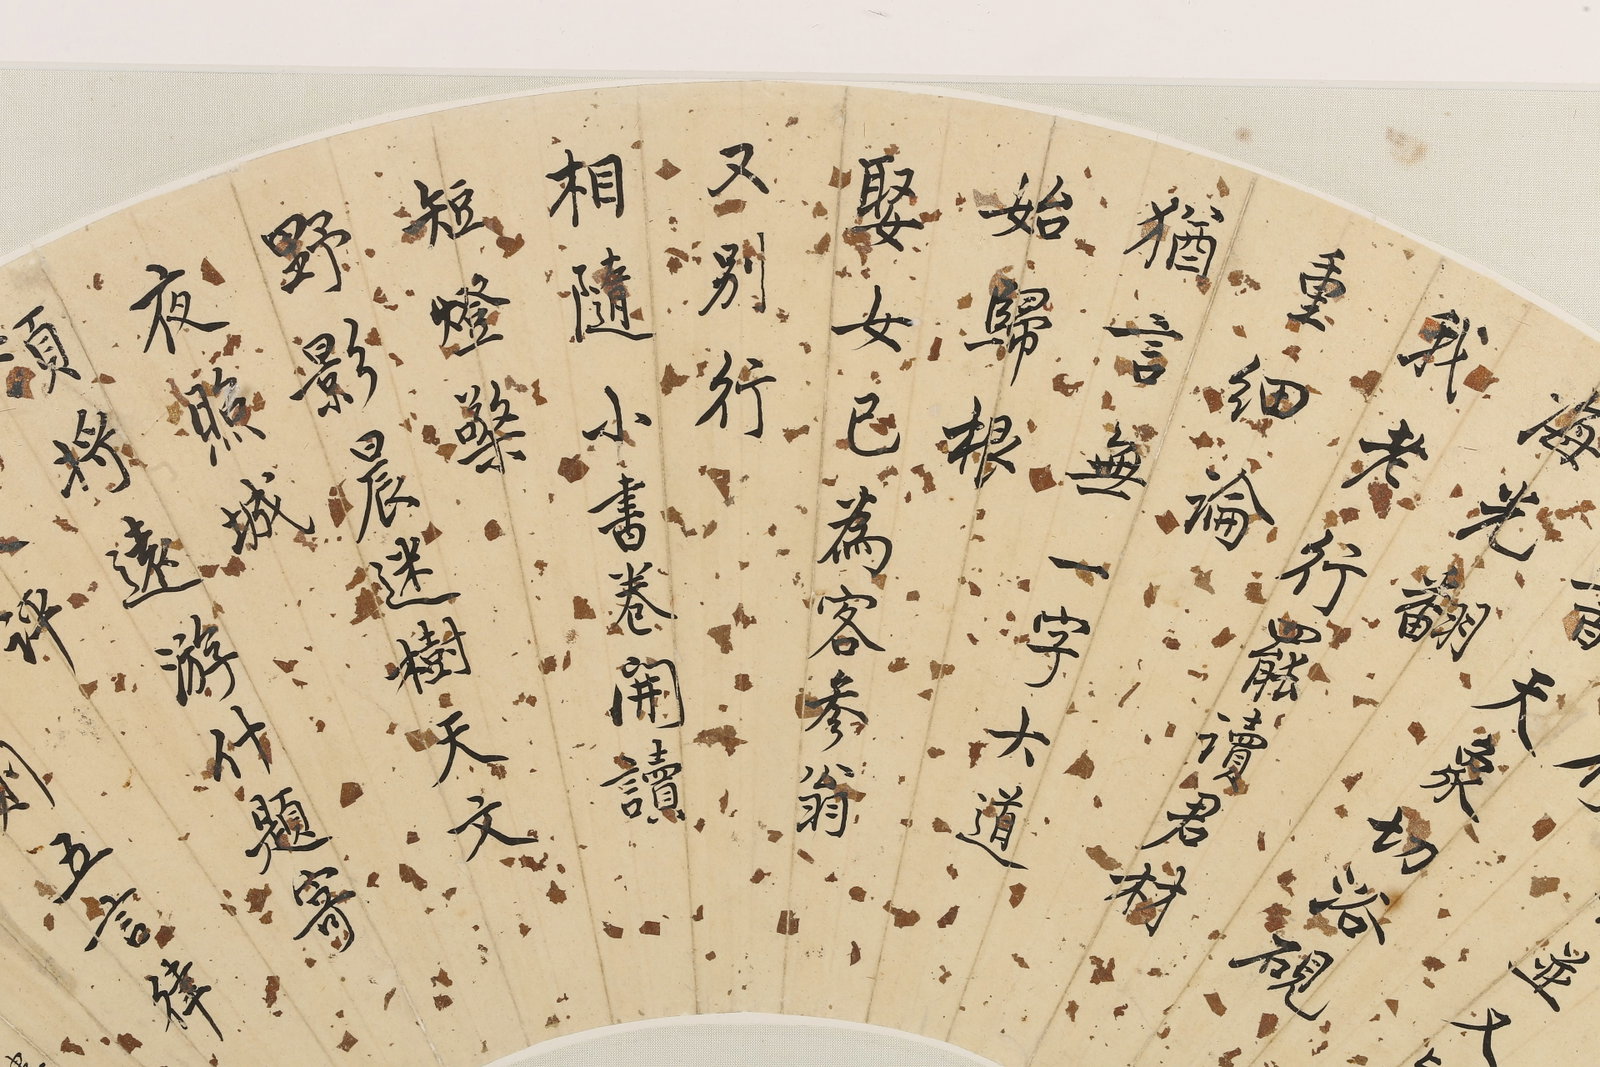 海光翻天
我老
昃切浴硯
重細論行罷讀君材
猶言無一字大道
始歸根
娶女已為客參翁
又別行
相隨小書卷開讀
短燈檠
野影晨迷樹天文
夜照城
須將遠游什題寄
五言律